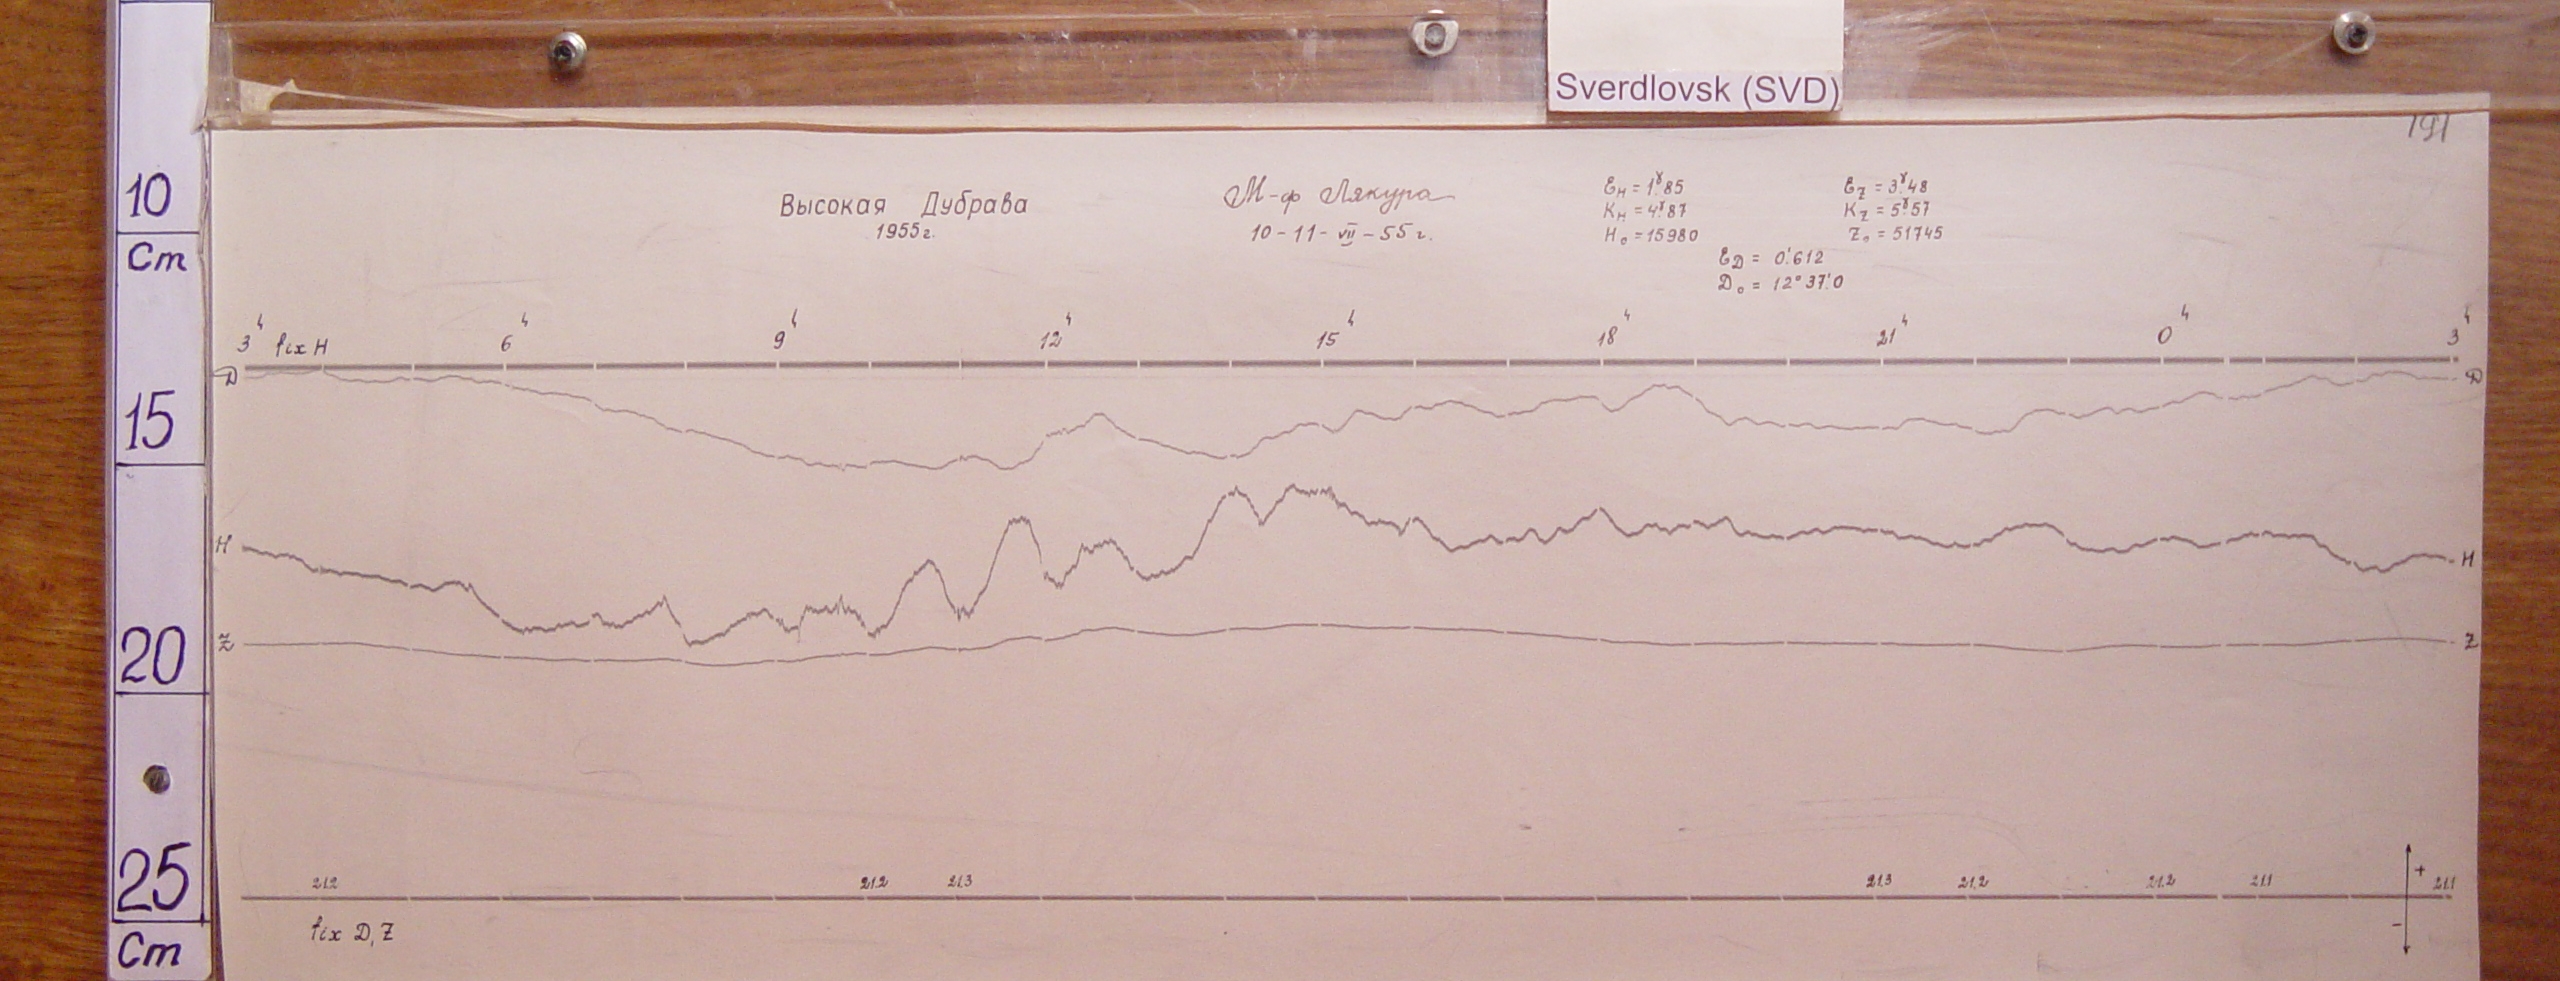 Sverdlovsk (SVD)
191
10
Cm
15
20
25
Cm
Высокая Дубрава
1955г.
М-ф Лякура
10-11-VII-55г.
ƐH = 1ˠ.85
KH = 4ˠ.87
H₀ = 15980
ƐZ = 3ˠ.48
KZ = 5ˠ.57
Z₀ = 51745
ƐD = 0'.612
D₀ = 12°37'.0
3ч fix H 6ч 9ч 12ч 15ч 18ч 21ч 0ч 3ч
D D
H H
Z Z
21.2 21.2 21.3 21.3 21.2 21.2 21.1 21.1
+
-
fix D, Z